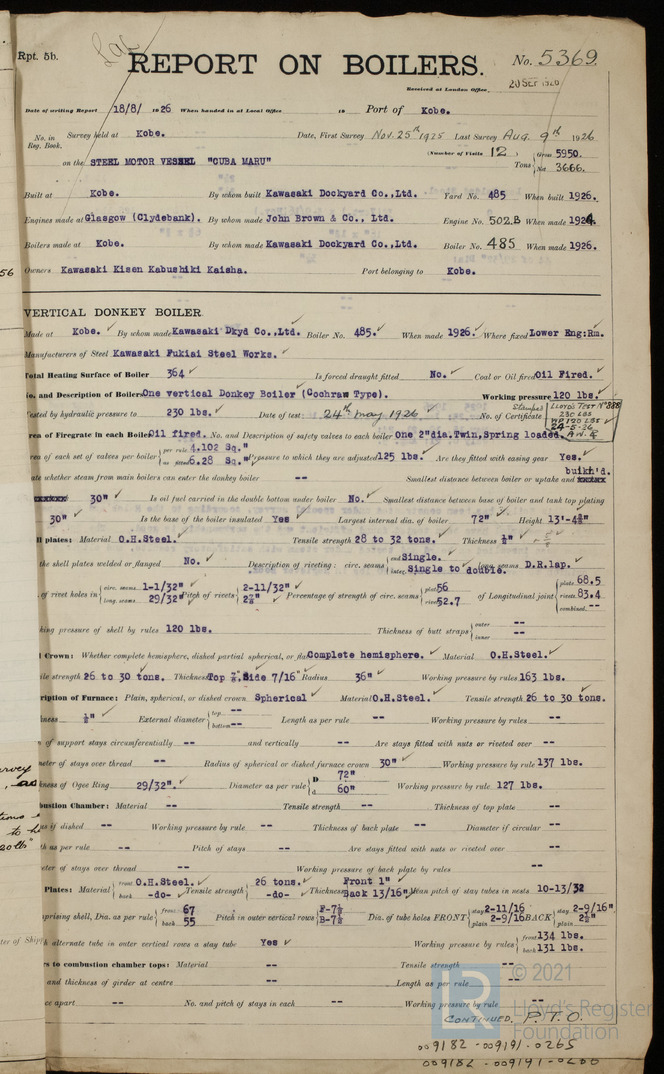 Rpt. 5b.
REPORT ON BOILERS.
No. 5369.
Received at London Office, 20 SEP 1926
Date of writing Report 18/8/ 1926 When handed in at Local Office 19 Port of Kobe.
No. in Reg. Book. Survey held at Kobe. Date, First Survey Nov. 25th 1925 Last Survey Aug. 9th 1926
(Number of Visits 12)
on the STEEL MOTOR VESSEL "CUBA MARU" Tons Gross 5950. Net 3666.
Built at Kobe. By whom built Kawasaki Dockyard Co.,Ltd. Yard No. 485 When built 1926.
Engines made at Glasgow (Clydebank). By whom made John Brown & Co., Ltd. Engine No. 502.B When made 1924.
Boilers made at Kobe. By whom made Kawasaki Dockyard Co.,Ltd. Boiler No. 485 When made 1926.
56
Owners Kawasaki Kisen Kabushiki Kaisha. Port belonging to Kobe.
VERTICAL DONKEY BOILER.
Made at Kobe. By whom made Kawasaki Dkyd Co.,Ltd. Boiler No. 485. When made 1926. Where fixed Lower Eng:Rm.
Manufacturers of Steel Kawasaki Fukiai Steel Works.
Total Heating Surface of Boiler 364 Is forced draught fitted No. Coal or Oil fired Oil Fired.
No. and Description of Boilers One vertical Donkey Boiler (Cochraw Type). Working pressure 120 lbs.
Tested by hydraulic pressure to 230 lbs. Date of test 24th May 1926 No. of Certificate Stamped LLOYD'S TEST No 388
230 LBS
WP 120 LBS
24-5-26
Area of Firegrate in each Boiler Oil fired. No. and Description of safety valves to each boiler One 2"dia.Twin,Spring loaded.
Area of each set of valves per boiler per rule 4.102 Sq." as fitted 6.28 Sq." Pressure to which they are adjusted 125 lbs. Are they fitted with easing gear Yes.
ate whether steam from main boilers can enter the donkey boiler -- Smallest distance between boiler or uptake and bulkh'd.
30" Is oil fuel carried in the double bottom under boiler No. Smallest distance between base of boiler and tank top plating
30" Is the base of the boiler insulated Yes Largest internal dia. of boiler 72" Height 13'-4
ll plates: Material O.H.Steel. Tensile strength 28 to 32 tons. Thickness
the shell plates welded or flanged No. Description of riveting: circ. seams end Single. inter. Single to double. long. seams D.R.lap.
of rivet holes in circ. seams 1-1/32" long. seams 29/32" Pitch of rivets 2-11/32" Percentage of strength of circ. seams plate 56 rivets 52.7 of Longitudinal joint plate 68.5 rivets 83.4 combined --
king pressure of shell by rules 120 lbs. Thickness of butt straps outer -- inner --
l Crown: Whether complete hemisphere, dished partial spherical, or flat Complete hemisphere. Material O.H.Steel.
ile strength 26 to 30 tons. Thickness Top Side 7/16" Radius 36" Working pressure by rules 163 lbs.
ription of Furnace: Plain, spherical, or dished crown Spherical Material O.H.Steel. Tensile strength 26 to 30 tons.
kness External diameter top -- bottom -- Length as per rule -- Working pressure by rules --
h of support stays circumferentially -- and vertically -- Are stays fitted with nuts or riveted over --
meter of stays over thread -- Radius of spherical or dished furnace crown 30" Working pressure by rule 137 lbs.
kness of Ogee Ring 29/32". Diameter as per rule D 72" d 60" Working pressure by rule 127 lbs.
bustion Chamber: Material -- Tensile strength -- Thickness of top plate --
us if dished -- Working pressure by rule -- Thickness of back plate -- Diameter if circular --
th as per rule -- Pitch of stays -- Are stays fitted with nuts or riveted over --
eter of stays over thread -- Working pressure of back plate by rules --
Plates: Material front O.H.Steel. back -do- Tensile strength 26 tons. -do- Thickness Front 1" Back 13/16" Mean pitch of stay tubes in nests 10-13/32
mprising shell, Dia. as per rule front 67 back 55 Pitch in outer vertical rows F-7 B-7 Dia. of tube holes FRONT stay 2-11/16 plain 2-9/16 BACK stay 2-9/16" plain 2½"
h alternate tube in outer vertical rows a stay tube Yes Working pressure by rules front 134 lbs. back 131 lbs.
rs to combustion chamber tops: Material -- Tensile strength --
and thickness of girder at centre -- Length as per rule --
ce apart -- No. and pitch of stays in each -- Working pressure by rule --
CONTINUED, P.T.O.
LR © 2021
Lloyd's Register
Foundation
009182 -009191-0265
009182 -009191-0266